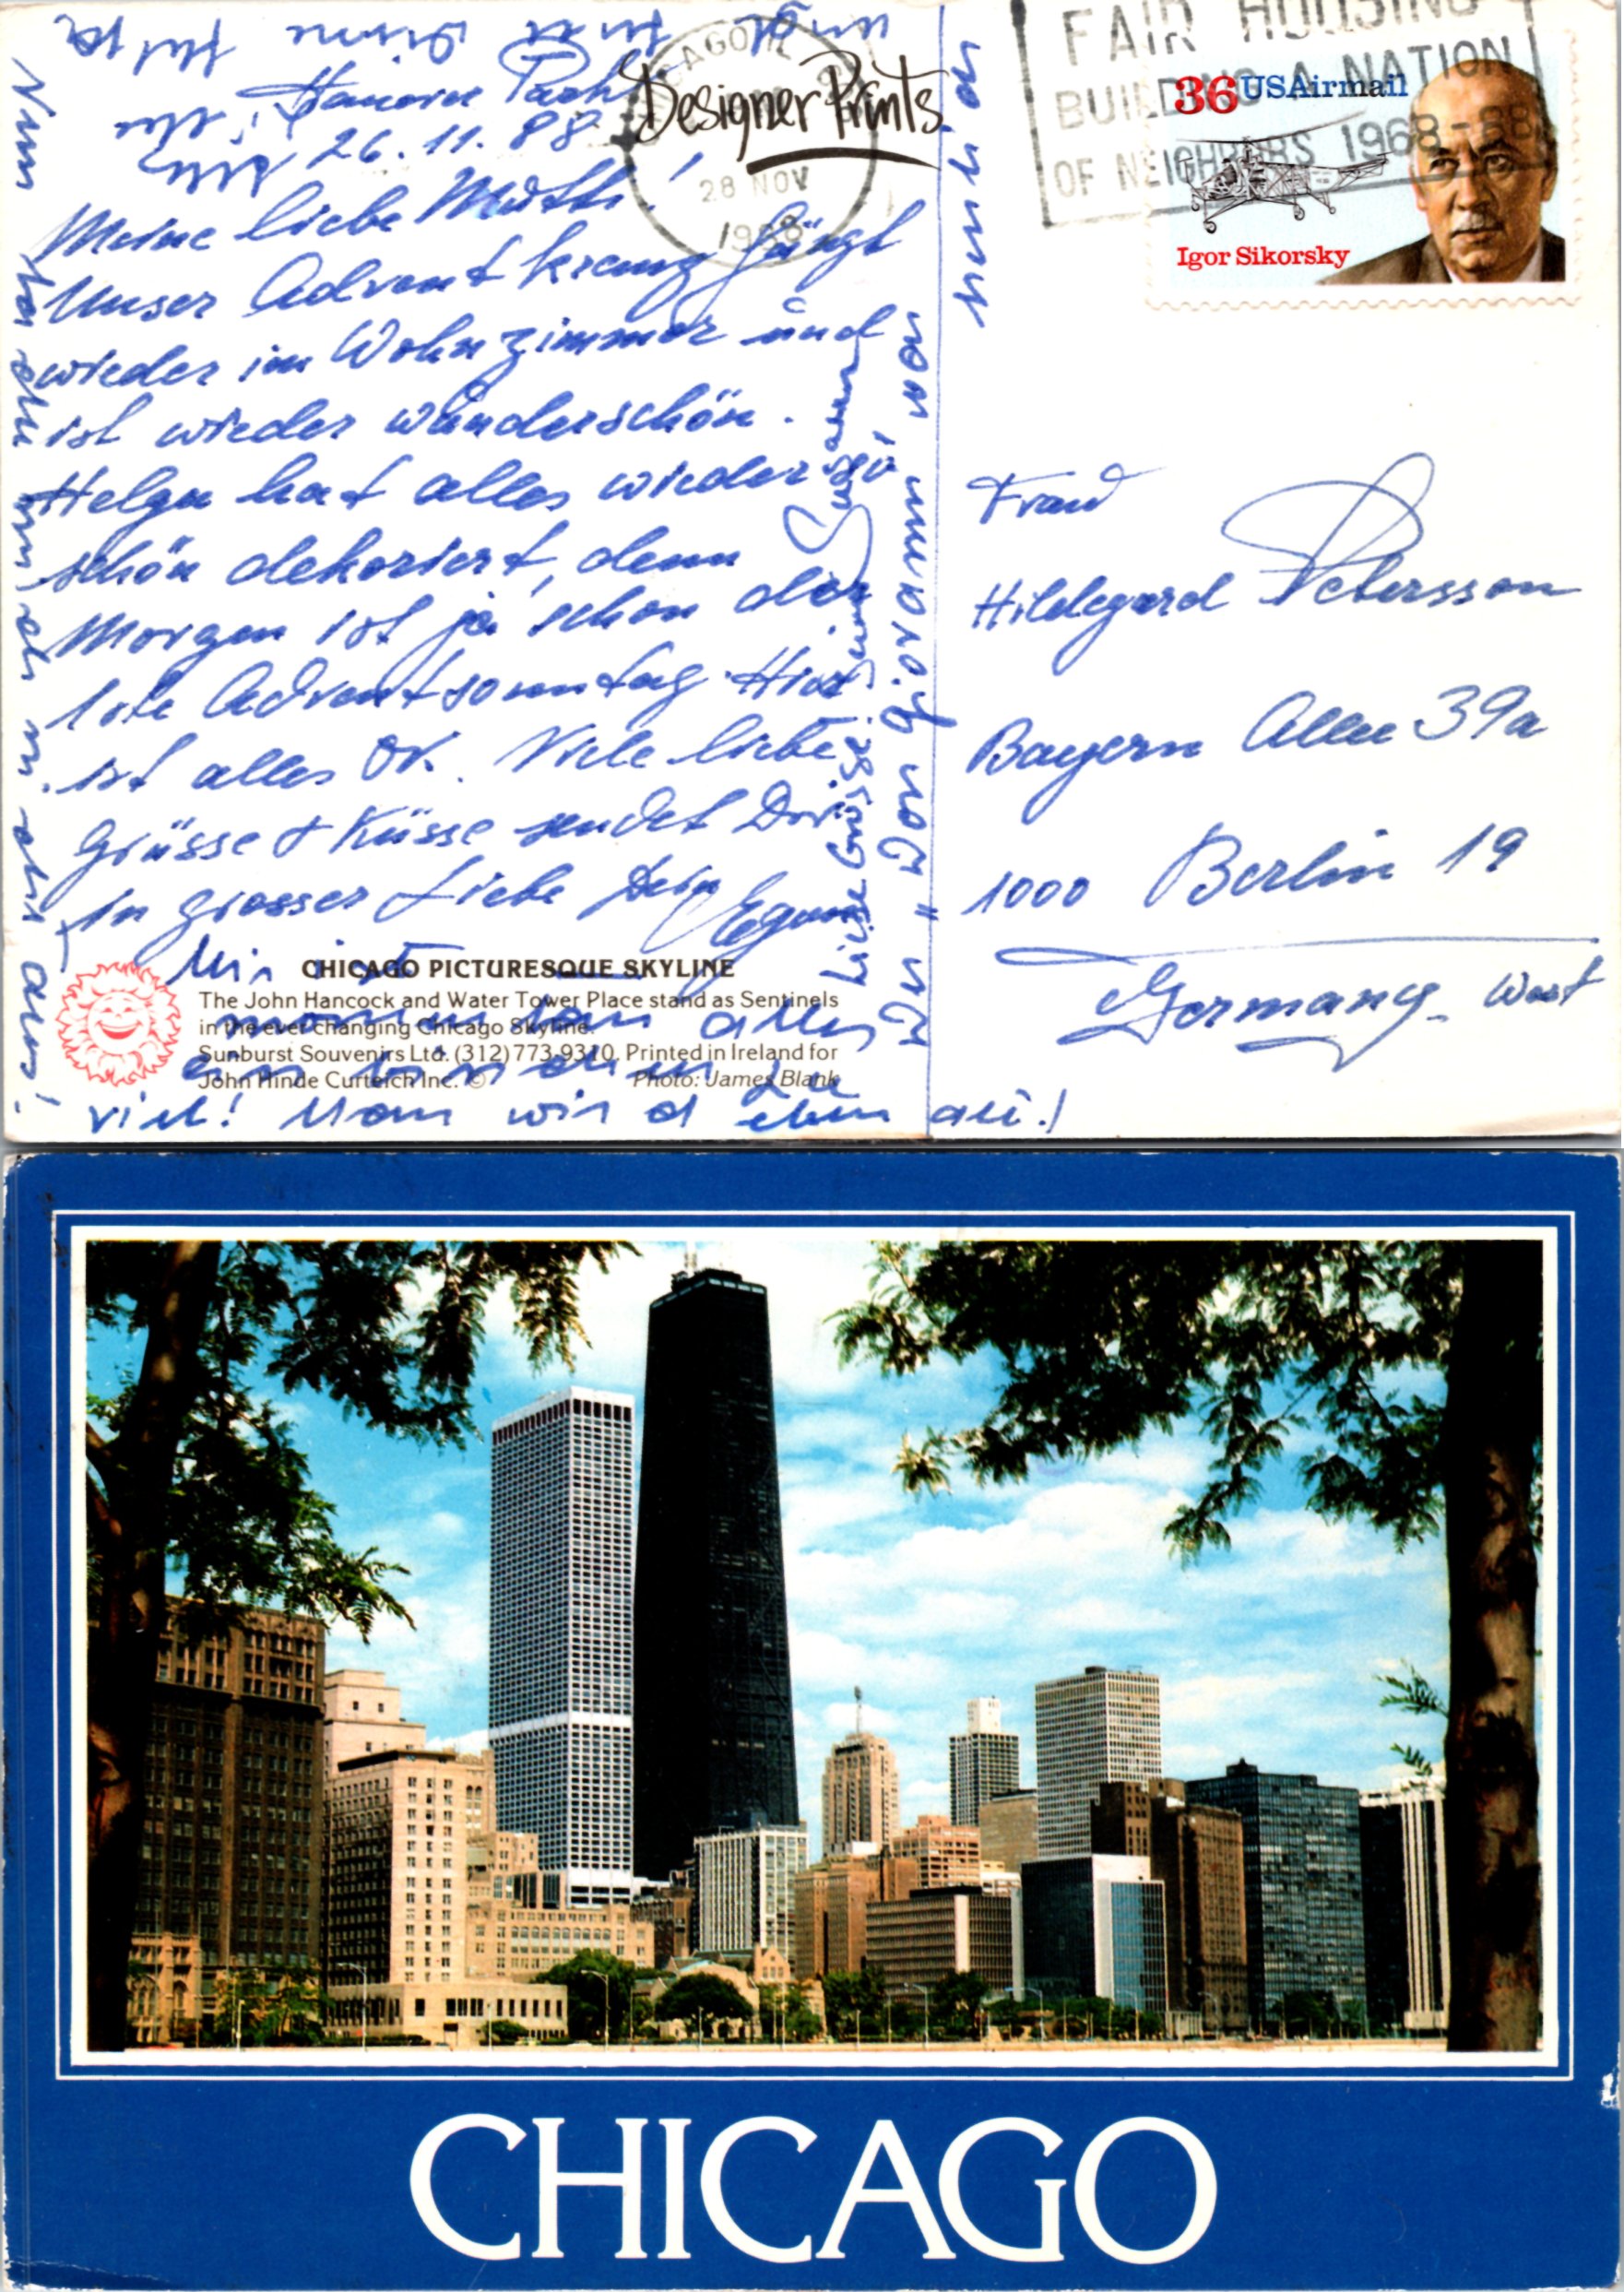 Hanover Park
26.11.88
Meine liebe Mutti!
Unser Adventkranz hängt
wieder im Wohnzimmer und
ist wieder wunderschön.
Helga hat alles wieder so
schön dekoriert, denn
Morgen ist ja schon der
1ste Adventsonntag. Hier
ist alles OK. Viele liebe
Grüsse + Küsse sendet Dir
in grosser Liebe Dein
Egon
Mir ist
momentan alles
ein bisschen zu
viel! Man wird eben alt!
Liebe Grüsse
Susann
CHICAGO PICTURESQUE SKYLINE
The John Hancock and Water Tower Place stand as Sentinels
in the ever changing Chicago Skyline.
Sunburst Souvenirs Ltd. (312) 773-9310. Printed in Ireland for
John Hinde Curteich Inc. ©
Photo: James Blank
Designer Prints
CHICAGO, IL
28 NOV
1988
FAIR HOUSING
BUILDING A NATION
OF NEIGHBORS 1968-88
36 USAirmail
Igor Sikorsky
Frau
Hildegard Petersson
Bayern Allee 39a
1000 Berlin 19
Germany - West
CHICAGO